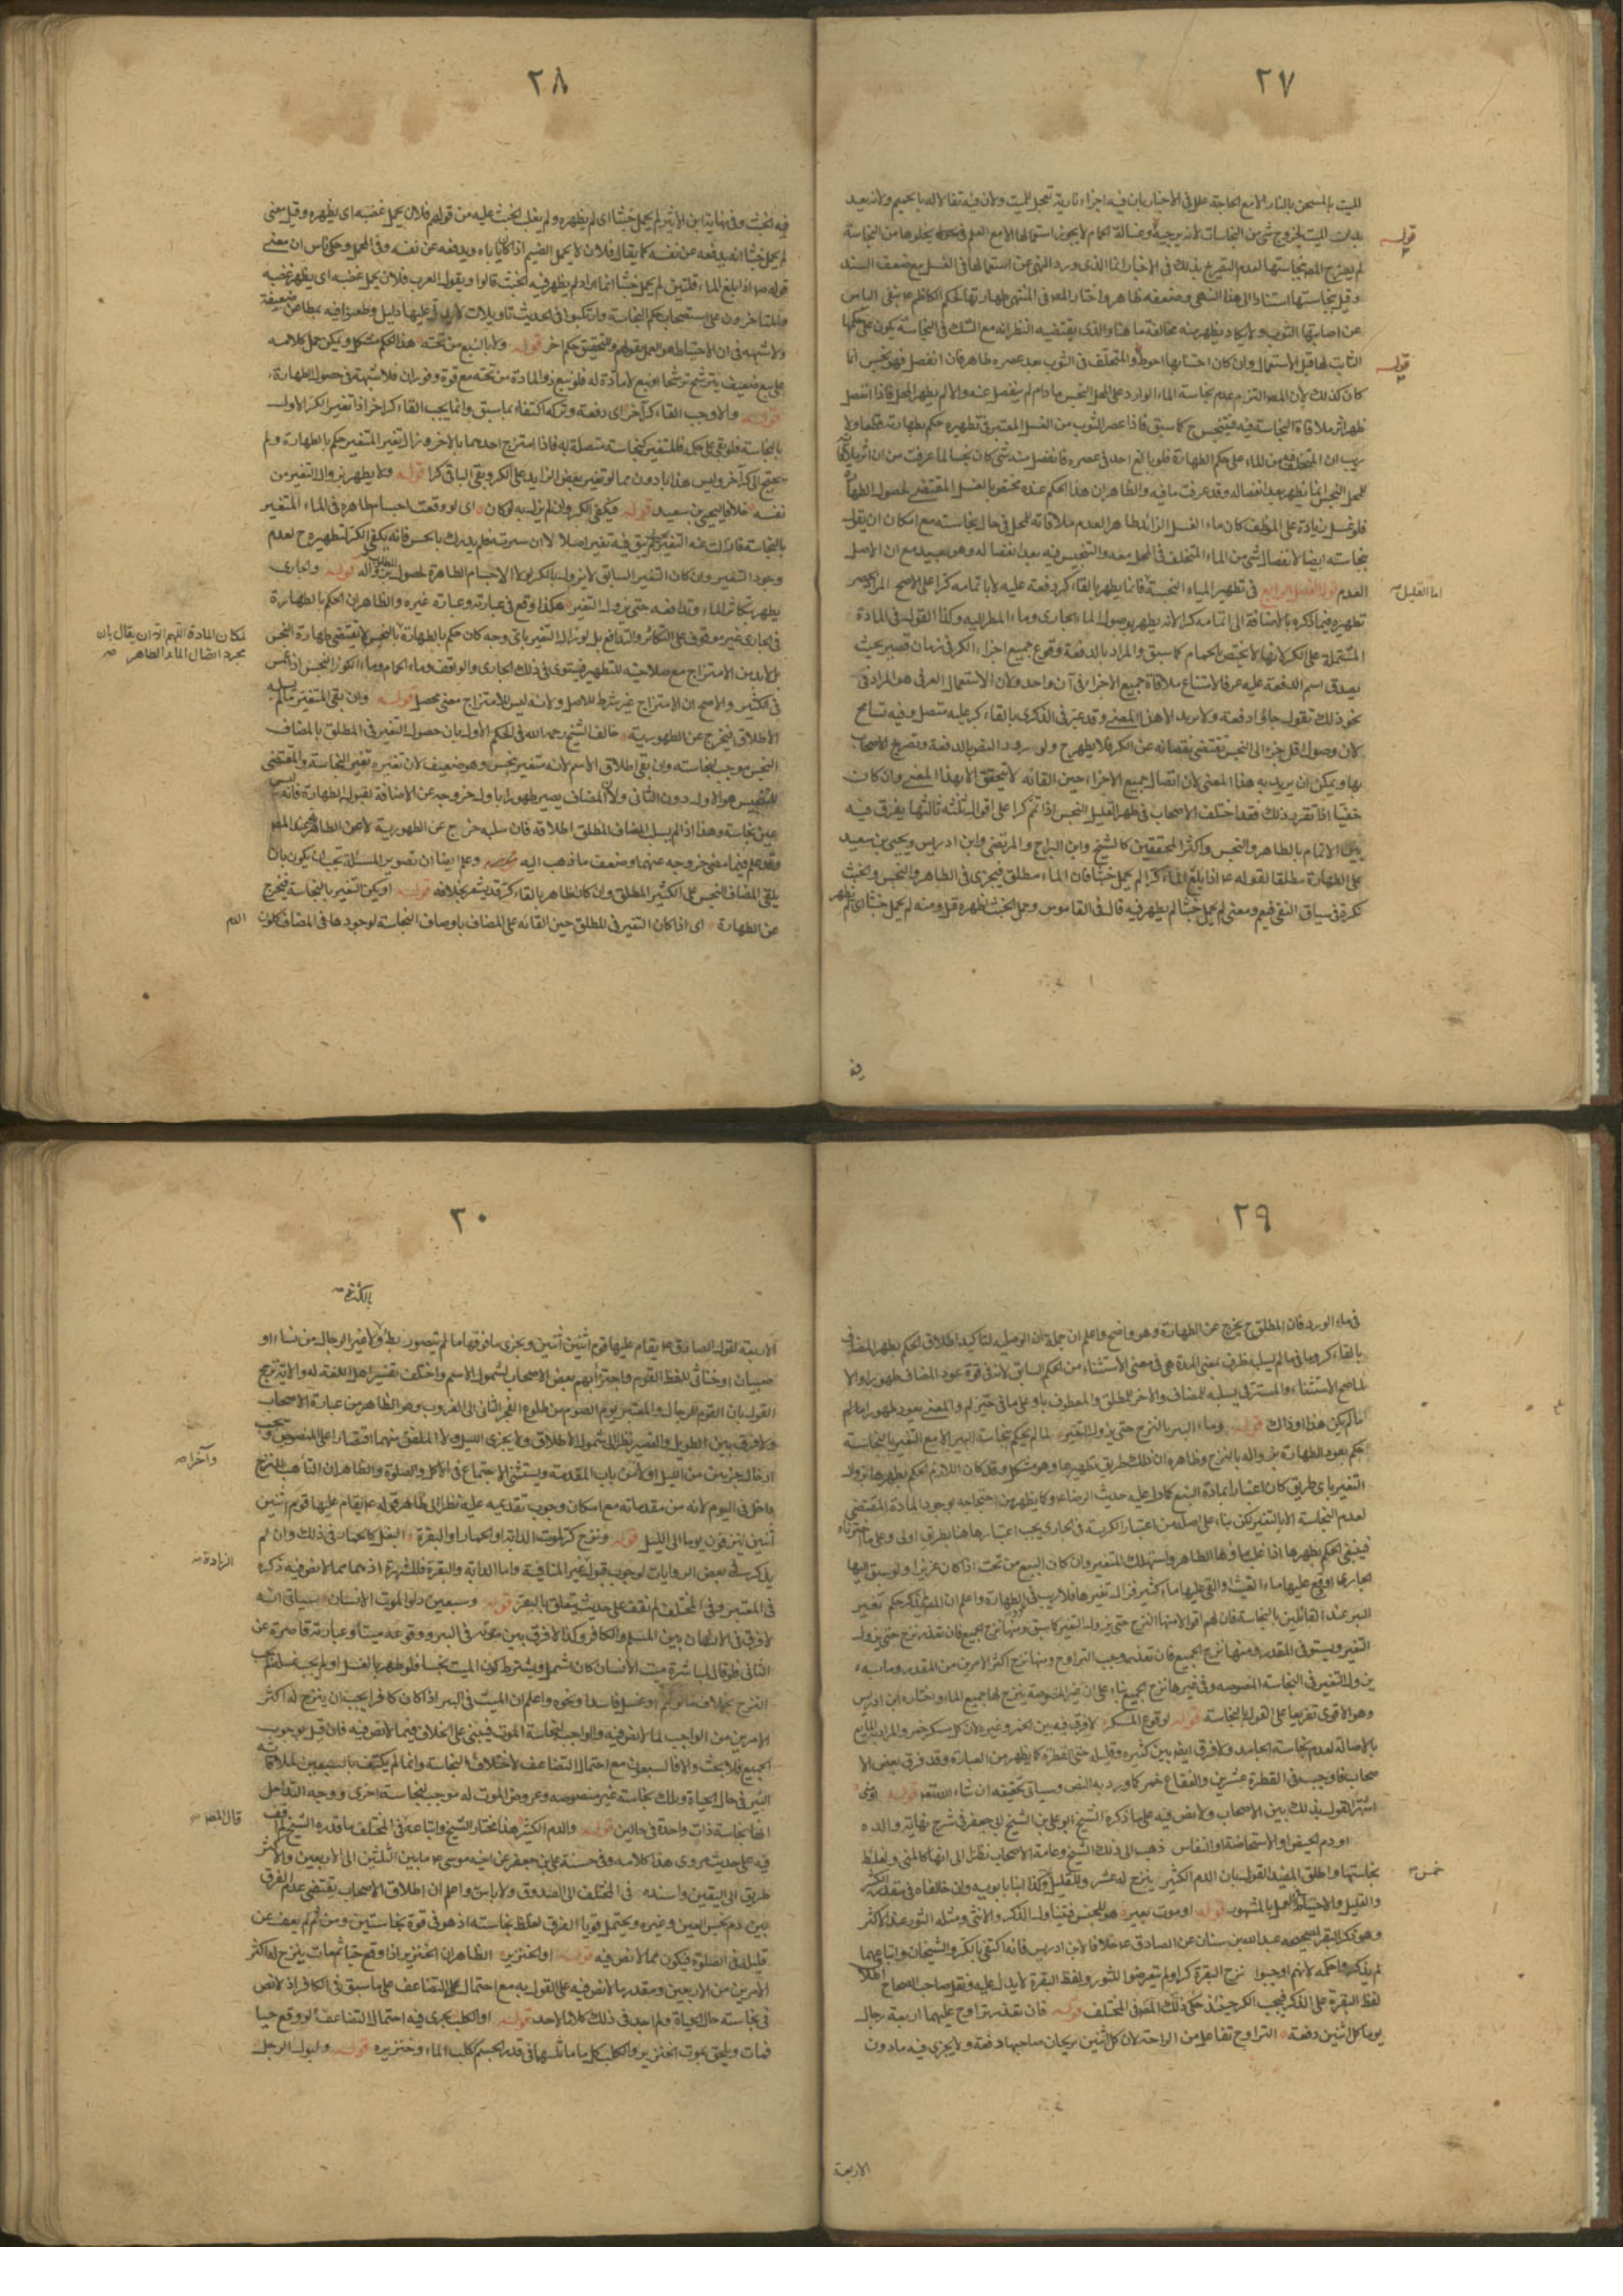 ٢٧
الميت بالمسخن بالنار الا مع الحاجة علل في الاخبار بان فيه اجزاء نارية تعجل للميت ولان فيه تفألا له بالحميم ولانه يعد
بدن الميت لخروج شئ من النجاسات لانه يرخيه وغسالة الحمام لا يجوز استعمالها الا مع العلم بخلوها من النجاسة
لم يصرح المص بنجاستها لعدم التصريح بذلك في الاخبار انما الذي ورد النهي عن استعمالها في الغسل مع ضعف السند
وقيل بنجاستها استنادا الى هذا النهي وضعفه ظاهر واختار المص في المنتهى طهارتها لحكم الكاظم ع بنفي الباس
عن اصابتها الثوب ولا يكاد يظهر منه مخالفة ما هنا والذي يقتضيه النظر انه مع الشك في النجاسة يكون على حكمها
الثابت لها قبل الاستعمال وان كان اجتنابها احوط والمتخلف في الثوب بعد عصره طاهر فان انفصل فهو نجس انما
كان كذلك لان المص التزم عدم نجاسة الماء الوارد على المحل النجس ما دام لم ينفصل عنه والا لم يطهر المحل فاذا انفصل
ظهر اثر ملاقاة النجاسة فيه فيتنجس ح كما سبق فاذا عصر الثوب من الغسل المعتبر في تطهيره حكم بطهارته قطعا ولا
ريب ان المتخلف فيه من الماء على حكم الطهارة فلو بالغ احد في عصره فانفصل منه شئ كان نجسا لما عرفت من ان اثر ملاقاة
المحل النجس انما يظهر بعد انفصاله وقد عرفت ما فيه والظاهر ان هذا الحكم عنده مختص بالغسل المقتضي لحصول الطهارة
فلو غسل زيادة على الموظف كان ماء الغسل الزائد طاهرا لعدم ملاقاته للمحل في حال نجاسته مع امكان ان يقال
بنجاسته ايضا لانفصال شئ من الماء المتخلف في المحل معه والتنجيس فيه بعد انفصاله وهو بعيد مع ان الاصل
العدم قوله الفصل الرابع في تطهير المياه النجسة فانما يطهر بالقاء كر دفعة عليه لا باتمامه كرا على الاصح المراد حصر
تطهيره فيما ذكره بالاضافة الى اتمامه كرا لانه يطهر بوصول الماء الجاري وماء المطر اليه وكذا القول في المادة
المشتملة على الكر لانها لا تختص بالحمام كما سبق والمراد بالدفعة وقوع جميع اجزاء الكر في زمان قصير بحيث
يصدق اسم الدفعة عليه عرفا لامتناع ملاقاة جميع الاجزاء في آن واحد ولان الاستعمال العرفي هو المراد في
نحو ذلك تقول جاؤا دفعة ولا تريد الا هذا المعنى وقد عبر في الذكرى بالقاء كر عليه متصل وفيه تسامح
لان وصول اقل جزء الى النجس يقتضي نقصانه عن الكر فلا يطهر ح ولورود النص بالدفعة وتصريح الاصحاب
بها ويمكن ان يريد به هذا المعنى لان اتصال جميع الاجزاء حين القائه لا يتحقق الا بهذا المعنى وان كان
خفيا اذا تقرر ذلك فقد اختلف الاصحاب في طهر القليل النجس اذا تمم كرا على اقوال ثلثة ثالثها يفرق فيه
بين الاتمام بالطاهر والنجس واكثر المحققين كالشيخ وابن البراج والمرتضى وابن ادريس ويحيى بن سعيد
على الطهارة مطلقا لقوله ع اذا بلغ الماء كرا لم يحمل خبثا فان الماء مطلق فيجري في الطاهر والنجس والخبث
نكرة في سياق النفي فيعم ومعنى لم يحمل خبثا لم يظهر فيه قال في القاموس وحمل الخبث اظهره قيل ومنه لم يحمل خبثا اي لم يظهر
قوله
قوله
اما القليل
فيه
٢٨
فيه الخبث وفي نهاية ابن الاثير لم يحمل خبثا اي لم يظهره ولم يغلب الخبث عليه من قولهم فلان يحمل غضبه اي يظهره وقيل معنى
لم يحمل خبثا انه يدفعه عن نفسه كما يقال فلان لا يحمل الضيم اذا كان ياباه ويدفعه عن نفسه وفي المجمل وحكى ناس ان معنى
قوله ص اذا بلغ الماء قلتين لم يحمل خبثا انما اراد لم يظهر فيه الخبث قالوا ويقول العرب فلان يحمل غضبه اي يظهر غضبه
والمتاخرون على استصحاب حكم النجاسة وارتكبوا في الحديث تاويلات لا يدل عليها دليل وطعنوا فيه بمطاعن ضعيفة
ولا شبهة في ان الاحتياط هو العمل بقولهم وللتحقيق حكم اخر قوله ولا بالنبع من تحته هذا الحكم مشكل ويمكن حمل كلامه
على نبع ضعيف يترشح ترشحا او نبع لا مادة له فلو نبع ذو المادة من تحته مع قوة وفوران فلا شبهة في حصول الطهارة
قوله والا وجب القاء كر آخر اي دفعة وتركه اكتفاء بما سبق وانما يجب القاء كر اخر اذا تغير الكر الاول
بالنجاسة فلو بقي على حكمه فالمتغير كنجاسة متصلة به فاذا امتزج احدهما بالاخر وزال تغير المتغير حكم بالطهارة ولم
يحتج الى كر آخر وليس هذا بادون مما لو تغير بعض الزايد على الكر وبقي الباقي كرا قوله ولا يطهر بزوال التغير من
نفسه خلافا ليحيى بن سعيد قوله فيكفي الكر وان لم يزل به لو كان اي لو وقعت اجسام طاهرة في الماء المتغير
بالنجاسة فازالت عنه التغير ولم يبق فيه تغير اصلا الا ان سورته فلم يدرك بالحس فانه يكفي الكر لتطهيره ح لعدم
وجود التغير وان كان التغير السابق لا يزول بالكر لولا الاجسام الطاهرة لحصول زواله قوله والجاري
يطهر بتكاثر الماء وتدافعه حتى يزول التغير هكذا وقع في عبارته وعبارة غيره والظاهر ان الحكم بالطهارة
في الجاري غير موقوف على التكاثر والتدافع بل لو زال التغير باي وجه كان حكم بالطهارة
بل لا بد من الامتزاج مع صلاحيته للتطهير فيستوي في ذلك الجاري والواقف وماء الحمام وماء الكوز النجس اذا غمس
في الكثير والاصح ان الامتزاج غير شرط للاصل ولانه ليس للامتزاج معنى محصل قوله وان بقي المتغير ما لم يسلبه
الاطلاق فيخرج عن الطهورية خالف الشيخ رحمه الله في الحكم الاول بان حصول التغير في المطلق بالمضاف
النجس موجب لنجاسته وان بقي اطلاق الاسم لانه متغير بنجس وهو ضعيف لان تغيره بغير النجاسة والمقتضي
للتنجيس هو الاول دون الثاني ولان المضاف يصير طهورا باول خروجه عن الاضافة لقبول الطهارة فانه ليس
عين نجاسة وهذا اذا لم يسلب المضاف المطلق اطلاقه فان سلبه خرج عن الطهورية لا عن الطاهرية عند المص
وقد علم فيما مضى خروجه عنهما وضعف ما ذهب اليه واعلم ايضا ان تصوير المسئلة يجب ان يكون بان
يلقى المضاف النجس على الكثير المطلق وان كان ظاهر بالقاء كر قد يشعر بخلافه قوله او يكن التغير بالنجاسة فيخرج
عن الطهارة اي اذا كان التغير في المطلق حين القائه على المضاف باوصاف النجاسة لوجودها في المضاف كلون الدم
لمكان المادة اللهم الا ان يقال بان
مجرد اتصال الماء الطاهر
٢٩
في ماء الورد فان المطلق ح يخرج عن الطهارة وهو واضح واعلم ان جملة ان الوصلية لتاكيد اطلاق الحكم بطهر المضاف
بالقاء كر وما في ما لم يسلبه ظرف بمعنى المدة هي في معنى الاستثناء من الحكم السابق لانه في قوة عود المضاف طهورا والا
لما صح الاستثناء والمستتر في يسلبه للمضاف والاخر للمطلق والمعطوف باو على ما في حيز لم والمعنى يعود طهورا ما لم
ما لم يكن هذا او ذاك قوله وماء البئر بالنزح حتى يزول التغير لما لم يحكم بنجاسة البئر الا مع التغير بالنجاسة
حكم بعود الطهارة بزواله بالنزح وظاهره ان ذلك طريق تطهيرها وهو مشكل وقد كان اللازم الحكم بطهرها بزوال
التغير باي طريق كان اعتبارا بمادة النبع كما دل عليه حديث الرضا ع وكما يظهر من احتجاجه بوجود المادة المقتضي
لعدم النجاسة الا بالتغير لكن بناء على اصله من اعتبار الكرية في الجاري يجب اعتبارها هنا بطريق اولى وعلى ما اخترناه
فينبغي الحكم بطهرها اذا غلب ماؤها الطاهر واستهلك المتغير وان كان النبع من تحت اذا كان غزيرا ولو سبق اليها
الجاري او وقع عليها ماء الغيث او القي عليها ماء كثير فزال تغيرها فلا ريب في الطهارة واعلم ان المص لم يذكر حكم تغير
البئر عند القائلين بالنجاسة فان لهم اقوالا منها النزح حتى يزول التغير كما سبق ومنها نزح الجميع فان تعذر نزح حتى يزول
التغير ويستوفى المقدر ومنها نزح الجميع فان تعذر وجب التراوح ومنها نزح اكثر الامرين من المقدر وما به
يزول التغير في النجاسة المنصوصة وفي غيرها نزح الجميع بناء على ان غير المنصوصة ينزح لها جميع الماء واختاره ابن ادريس
وهو الاقوى تفريعا على القول بالنجاسة قوله لوقوع المسكر لا فرق فيه بين الخمر وغيره لان كل مسكر خمر والمراد المايع
بالاصالة لعدم نجاسة الجامد ولا فرق ايضا بين كثيره وقليله حتى القطرة كما يظهر من العبارة وقد فرق بعض الا
صحاب فاوجب في القطرة عشرين والفقاع خمر كما ورد به النص وسياتي تحقيقه ان شاء الله تعالى قوله
اشتهر القول بذلك بين الاصحاب ولا نص فيه على ما ذكره الشيخ ابو علي بن الشيخ ابي جعفر في شرح نهاية والده
او دم الحيض او الاستحاضة او النفاس ذهب الى ذلك الشيخ وعامة الاصحاب نظرا الى انها كالمني ولغلظ
نجاستها واطلق المفيد القول بان الدم الكثير ينزح له عشر وللقليل وكذا ابنا بابويه وان خالفاه في مقدر الكثير
والقليل والاحتياط العمل بالمشهور قوله او موت بعير هو للجنس فيتناول الذكر والانثى ومثله الثور عند الاكثر
وهو ذكر البقر لصحيحة عبد الله بن سنان عن الصادق ع خلافا لابن ادريس فانه اكتفى بالكر والشيخان واتباعهما
لم يذكروا حكمه لانهم اوجبوا نزح البقرة كرا ولم يتعرضوا للثور ولفظ البقرة لا يدل عليه ونقل صاحب الصحاح اطلاق
لفظ البقرة على الذكر فيجب الكر حينئذ حكى ذلك المص في المختلف قوله فان تعذر تراوح عليهما اربعة رجال
يوما كل اثنين دفعة التراوح تفاعل من الراحة لان كل اثنين يريحان صاحبهما دفعة ولا يجزي فيه ما دون
خمس
الاربعة
٣٠
الاربعة لقول الصادق ع يقام عليها قوم اثنين اثنين ويجزي ما فوقها ما لم يتصور بطؤ ولا غير الرجال من نساء او
صبيان او خناثى للفظ القوم واجتزأ بهم بعض الاصحاب لشمول الاسم واختلف تفسير اهل اللغة له والا يترجح
القول بان القوم للرجال والمعتبر يوم الصوم من طلوع الفجر الثاني الى الغروب وهو الظاهر من عبارة الاصحاب
ولا فرق بين الطويل والقصير نظرا الى شمول الاطلاق ولا يجزي الليل ولا الملفق منهما اقتصارا على المنصوص ويجب
ادخال جزئين من الليل اولا من باب المقدمة ويستثنى الاجتماع في الاكل والصلوة والظاهر ان التاهب للنزح
داخل في اليوم لانه من مقدماته مع امكان وجوب تقديمه عليه نظرا الى ظاهر قوله ع يقام عليها قوم اثنين
اثنين ينزفون يوما الى الليل قوله ونزح كر لموت الدابة او الحمار او البقرة البغل كالحمار في ذلك وان لم
يذكر في بعض الروايات لوجوب قبول غير المنافية واما الدابة والبقرة فللشهرة اذ هما مما لا نص فيه ذكره
في المعتبر وفي المختلف لم نقف على حديث يتعلق بالبقر قوله وسبعين دلوا لموت الانسان سياتي انه
لا فرق في الانسان بين المسلم والكافر وكذا لا فرق بين موته في البئر ووقوعه ميتا وعبارته قاصرة عن
الثاني فلو قال لمباشرة ميت الانسان كان اشمل ويشترط كون الميت نجسا فلو طهر بالغسل او لم يجب غسله لم يجب
النزح بخلاف ما لو يمم او غسل فاسدا ونحوه واعلم ان الميت في البئر اذا كان كافرا يجب ان ينزح له اكثر
الامرين من الواجب لما لا نص فيه والواجب لنجاسة الموت فيبنى على الخلاف فيما لا نص فيه فان قيل بوجوب
الجميع فلا بحث والا فالسبعون مع احتمال التضاعف لاختلاف النجاسة وانما لم يكتف بالسبعين لملاقاته
البئر في حال الحياة وتلك نجاسة غير منصوصة وعروض الموت له موجب لنجاسة اخرى ووجه التداخل
انها نجاسة ذات واحدة في حالين قوله والدم الكثير هذا مختار الشيخ واتباعه في المختلف ما قدره الشيخ لم اقف
فيه على حديث مروي هذا كلامه وفي حسنة علي بن جعفر عن اخيه موسى ع ما بين الثلثين الى الاربعين والاكثر
طريق الى اليقين واسنده في المختلف الى الصدوق ولا باس واعلم ان اطلاق الاصحاب يقتضي عدم الفرق
بين دم نجس العين وغيره ويحتمل قويا الفرق لغلظ نجاسته اذ هو في قوة نجاستين ومن ثم لم يعف عن
قليله في الصلوة فيكون مما لا نص فيه قوله او الخنزير الظاهر ان الخنزير اذا وقع حيا ثم مات ينزح له اكثر
الامرين من الاربعين ومقدر ما لا نص فيه على القول به مع احتمال التضاعف على ما سبق في الكافر اذ لا نص
في نجاسته حال الحياة ولم اجد في ذلك كلاما لاحد قوله او الكلب يجري فيه احتمال التضاعف لو وقع حيا
فمات ويلحق بموت الخنزير والكلب كل ما ماثلهما في قدر الجسم ككلب الماء وخنزيره قوله ولبول الرجل
وآخرا
الزيادة
قال المص